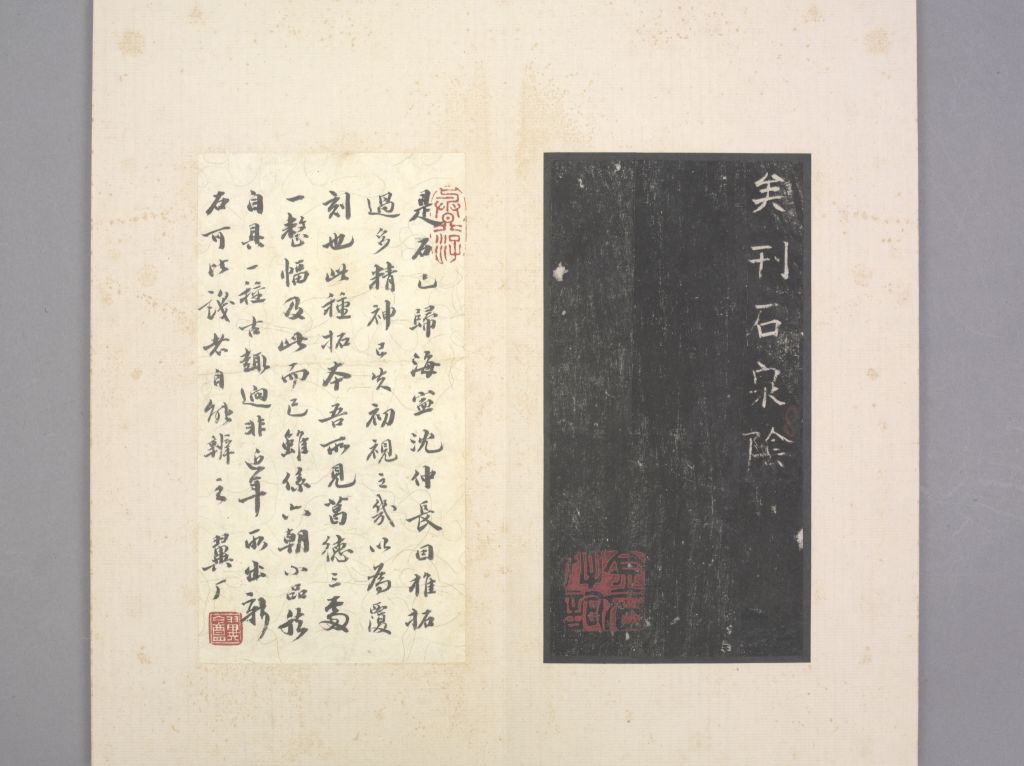 矣刊石泉陰
是石已歸海寧沈仲長因椎拓
過多精神已失初視之幾以為覆
刻也此種拓本吾所見舊德三處
一整幅及此而已雖係六朝小品然
自具一種古趣迥非近年所出新
石可比識者自能辨之 翼厂